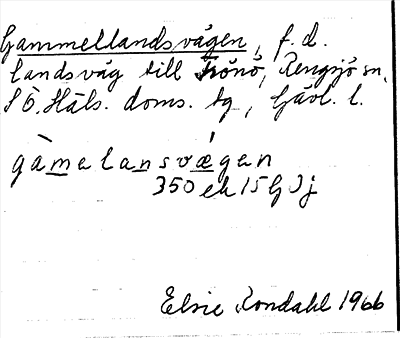 Gammellandsvägen, f.d.
landsväg till Trönö, Rengsjö sn.
S Ö. Häls. doms. tg, Gävl. l.
gàmelansvǽgen
350 ek 15 G 3j
Elsie Rondahl 1966